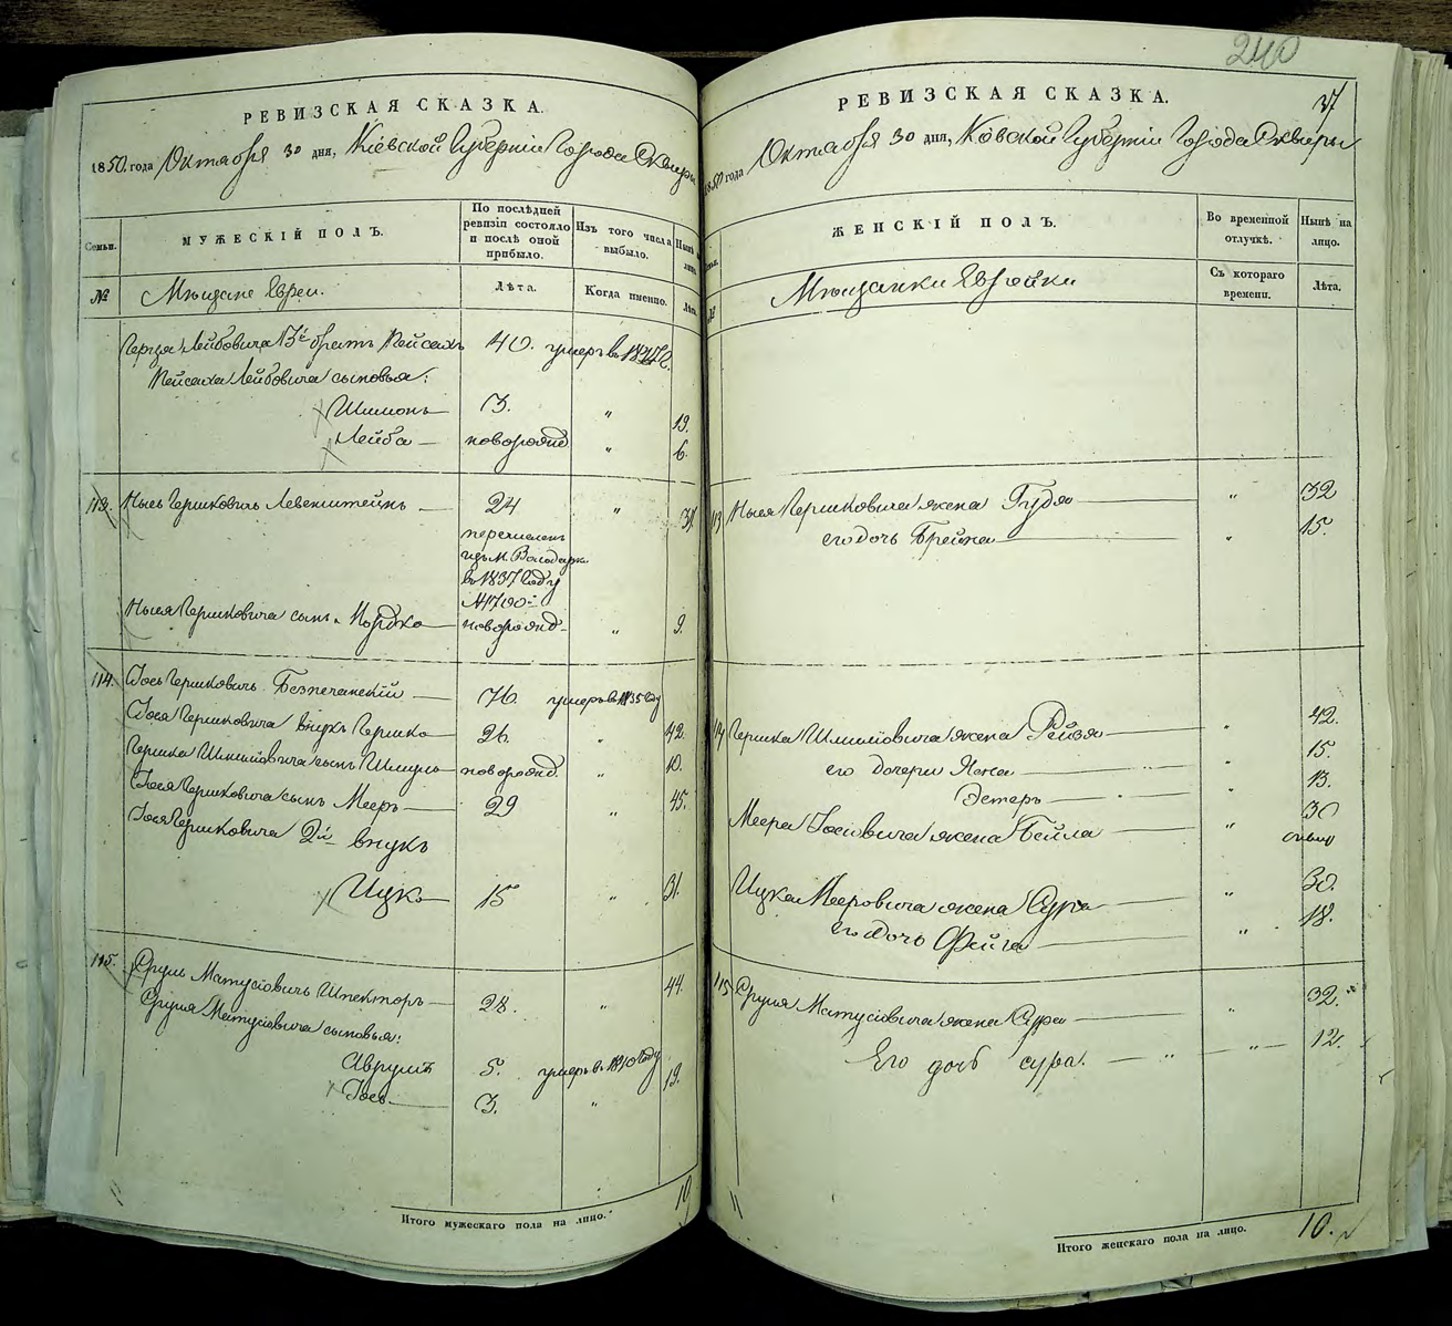 240
РЕВИЗСКАЯ СКАЗКА.
1850. года Октября 30 дня, Кіевской Губерніи Города Сквиры
Семьи.
МУЖЕСКІЙ ПОЛЪ.
По послѣдней ревизіи состояло и послѣ оной прибыло.
Изъ того числа выбыло.
Нынѣ на лицо.
№
Мѣщане Евреи.
Лѣта.
Когда именно.
Лѣта.
Герша Лейбовича 3й братъ Пейсахъ 40. умеръ въ
Пейсаха Лейбовича сыновья:
Шимонъ 3. " 19.
Лейба новорожд " 6.
113. Нысь Гершковичъ Левенштейнъ 24 " 37.
перечисленъ
изъ М. Володарки
въ 1837 Году
Нысія Гершковича сынъ Мордко новорожд " 9.
114. Іось Гершковичъ Безпечанскій 76. умеръ въ 1835 Году
Іося Гершковича внукъ Гершко 26. " 42.
Гершка Шмулiовича сынъ Шмуль новорожд. " 10.
Іося Гершковича сынъ Мееръ 29 " 45.
Іося Гершковича 2й внукъ
Ицко 15 " 31.
115. Сруль Матусовичъ Шпекторъ 28. " 44.
Сруля Матусовича сыновья:
Аврумъ 5. умеръ въ 1840 Году
Іось 3. " 19.
Итого мужескаго пола на лицо. 10
РЕВИЗСКАЯ СКАЗКА. 37
1850 года Октября 30 дня, Кіевской Губерніи Города Сквиры
ЖЕНСКІЙ ПОЛЪ.
Во временной отлучкѣ.
Нынѣ на лицо.
№
Мѣщанки Еврейки
Съ котораго времени.
Лѣта.
113 Нысія Гершковича жена Гудя " 32
его дочь Брейна " 15.
114 Гершка Шмулiовича жена Рейзя " 42.
его дочери Яхна " 15.
Эстеръ " 13.
Меера Іосіовича жена Бейла " 30
Ицка Мееровича жена Сура " 30.
его дочь Фейга " 18.
115 Сруля Матусовича жена Сура " 32.
Его дочь сура. " " 12.
Итого женскаго пола на лицо. 10.